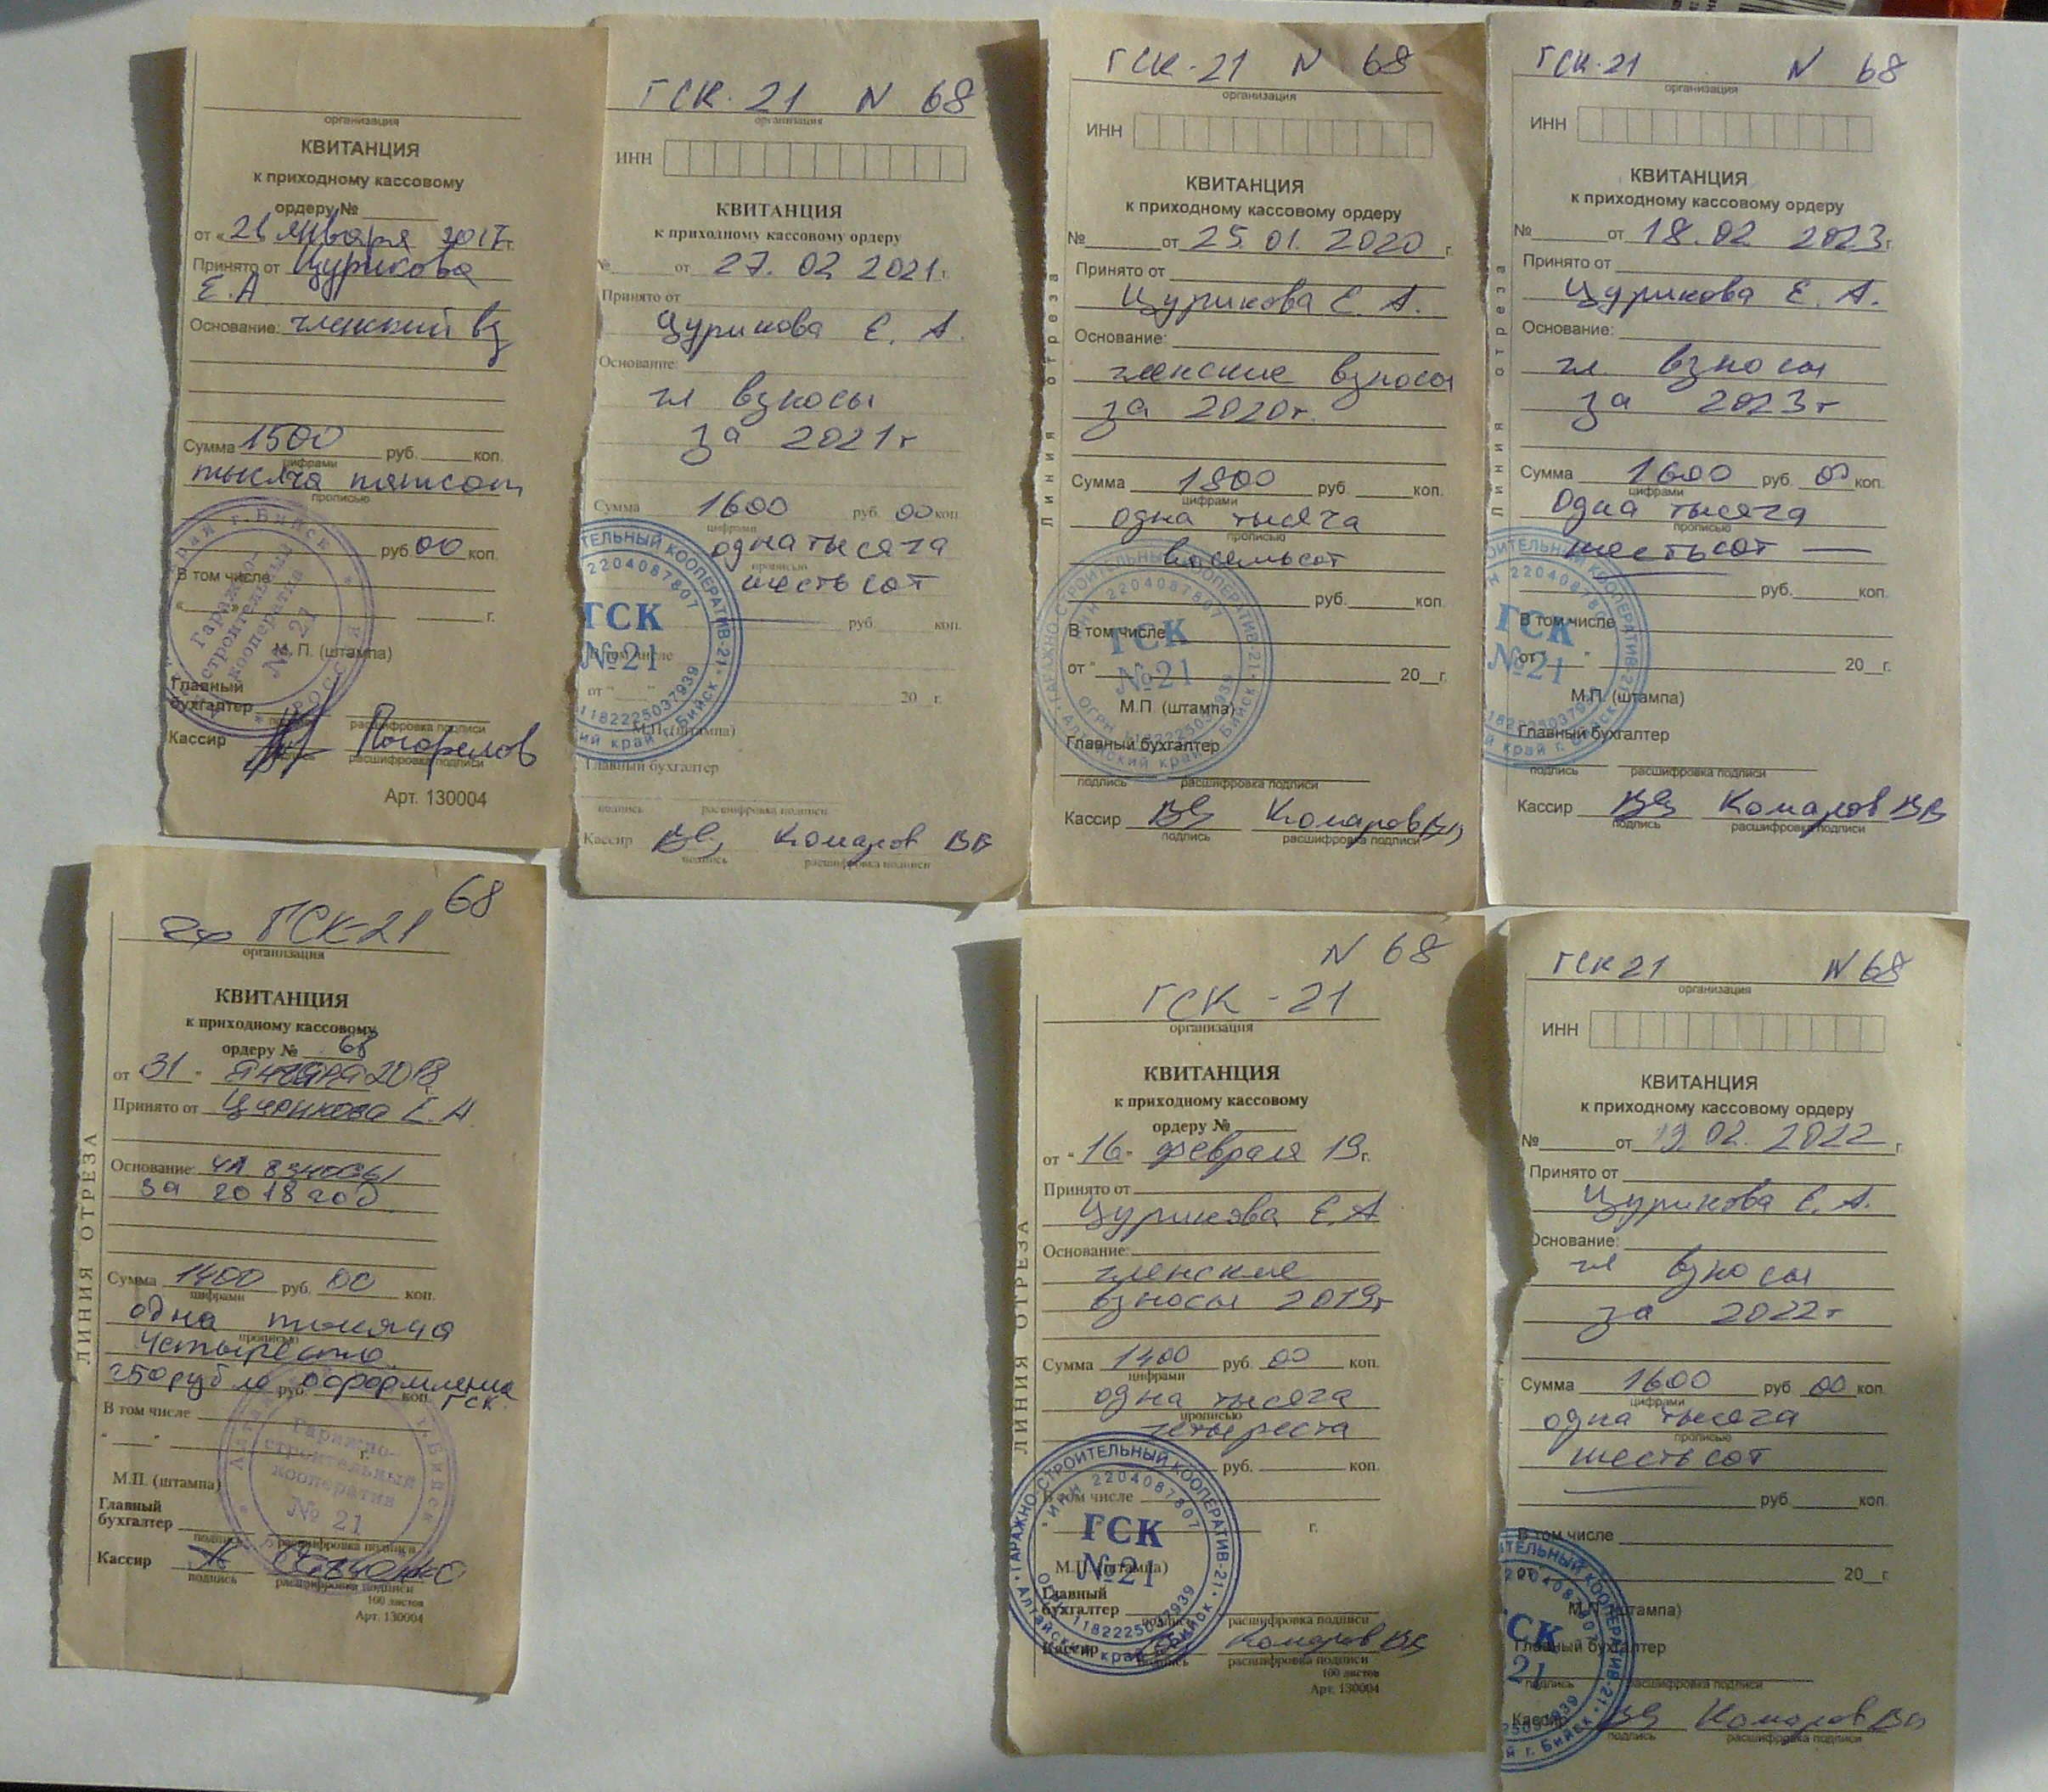 организация
КВИТАНЦИЯ
к приходному кассовому
ордеру №
от « января 2017г.
Принято от Цурикова
Е.А
Основание: членский вз
Сумма 1500 руб. коп.
цифрами
тысяча пятьсот
прописью
руб. 00 коп.
В том числе
« г.
Гаражно-
строительный
кооператив
№ 21
г. Бийск
М. П. (штампа)
Главный
бухгалтер
подпись расшифровка подписи
Кассир Погорелов
подпись расшифровка подписи
Арт. 130004
ГСК-21 N 68
организация
ИНН
КВИТАНЦИЯ
к приходному кассовому ордеру
№ от 27.02 2021 г.
Принято от
Цурикова Е. А.
Основание:
чл взносы
за 2021 г
Сумма 1600 руб. 00 коп.
цифрами
одна тысяча
прописью
шестьсот
руб. коп.
В том числе
от " " 20 г.
ТЕЛЬНЫЙ КООПЕРАТИВ-21
2204087807
ГСК
№21
1182225037939
ий край г. Бийск
М.П. (штампа)
Главный бухгалтер
подпись расшифровка подписи
Кассир Комаров ВВ
подпись расшифровка подписи
ГСК-21 N 68
организация
ИНН
КВИТАНЦИЯ
к приходному кассовому ордеру
№ от 25.01.2020 г.
Принято от
Цурикова Е. А.
Основание:
членские взносы
за 2020г.
Сумма 1800 руб. коп.
цифрами
одна тысяча
прописью
восемьсот
руб. коп.
В том числе
от " " 20 г.
ГАРАЖНО-СТРОИТЕЛЬНЫЙ КООПЕРАТИВ-21
ИНН 2204087807
ГСК
№21
ОГРН 1182225037939
Алтайский край г. Бийск
М.П. (штампа)
Главный бухгалтер
подпись расшифровка подписи
Кассир Комаров ВВ
подпись расшифровка подписи
Линия отреза
ГСК-21 N 68
организация
ИНН
КВИТАНЦИЯ
к приходному кассовому ордеру
№ от 18.02 2023 г.
Принято от
Цурикова Е. А.
Основание:
чл взносы
за 2023 г
Сумма 1600 руб. 00 коп.
цифрами
одна тысяча
прописью
шестьсот —
руб. коп.
В том числе
от " " 20 г.
ИТЕЛЬНЫЙ КООПЕРАТИВ-21
2204087807
ГСК
№21
край г. Бийск
М.П. (штампа)
Главный бухгалтер
подпись расшифровка подписи
Кассир Комаров ВВ
подпись расшифровка подписи
Линия отреза
68
ГСК-21
организация
КВИТАНЦИЯ
к приходному кассовому
ордеру № 68
от 31 " января 2018
Принято от Цурикова Е. А
Основание: чл взносы
за 2018 год
Сумма 1400 руб. 00 коп.
цифрами
одна тысяча
прописью
четыреста
250 рубле оформление
руб. коп. ГСК.
В том числе
" " г.
Гаражно-
строительный
кооператив
№ 21
г. Бийск
М.П. (штампа)
Главный
бухгалтер
подпись расшифровка подписи
Кассир
подпись расшифровка подписи
100 листов
Арт. 130004
ЛИНИЯ ОТРЕЗА
N 68
ГСК-21
организация
КВИТАНЦИЯ
к приходному кассовому
ордеру №
от "16" февраля 19 г.
Принято от
Цурикова Е.А
Основание:
членские
взносы 2019г
Сумма 1400 руб. 00 коп.
цифрами
одна тысяча
прописью
четыреста
руб. коп.
В том числе
г.
ГАРАЖНО-СТРОИТЕЛЬНЫЙ КООПЕРАТИВ-21
ИНН 2204087807
ГСК
№21
1182225037939
Алтайский край г. Бийск
М.П. (штампа)
Главный
бухгалтер
подпись расшифровка подписи
Кассир Комаров ВВ
подпись расшифровка подписи
100 листов
Арт. 130004
ЛИНИЯ ОТРЕЗА
ГСК 21 N 68
организация
ИНН
КВИТАНЦИЯ
к приходному кассовому ордеру
№ от 19.02.2022 г.
Принято от
Цурикова Е. А.
Основание:
чл взносы
за 2022 г
Сумма 1600 руб 00 коп.
цифрами
одна тысяча
прописью
шестьсот
руб. коп.
В том числе
от 20 г.
ТЕЛЬНЫЙ КООПЕРАТИВ-21
ГСК
21
й г. Бийск
М.П. (штампа)
Главный бухгалтер
подпись расшифровка подписи
Кассир Комаров ВВ
подпись расшифровка подписи